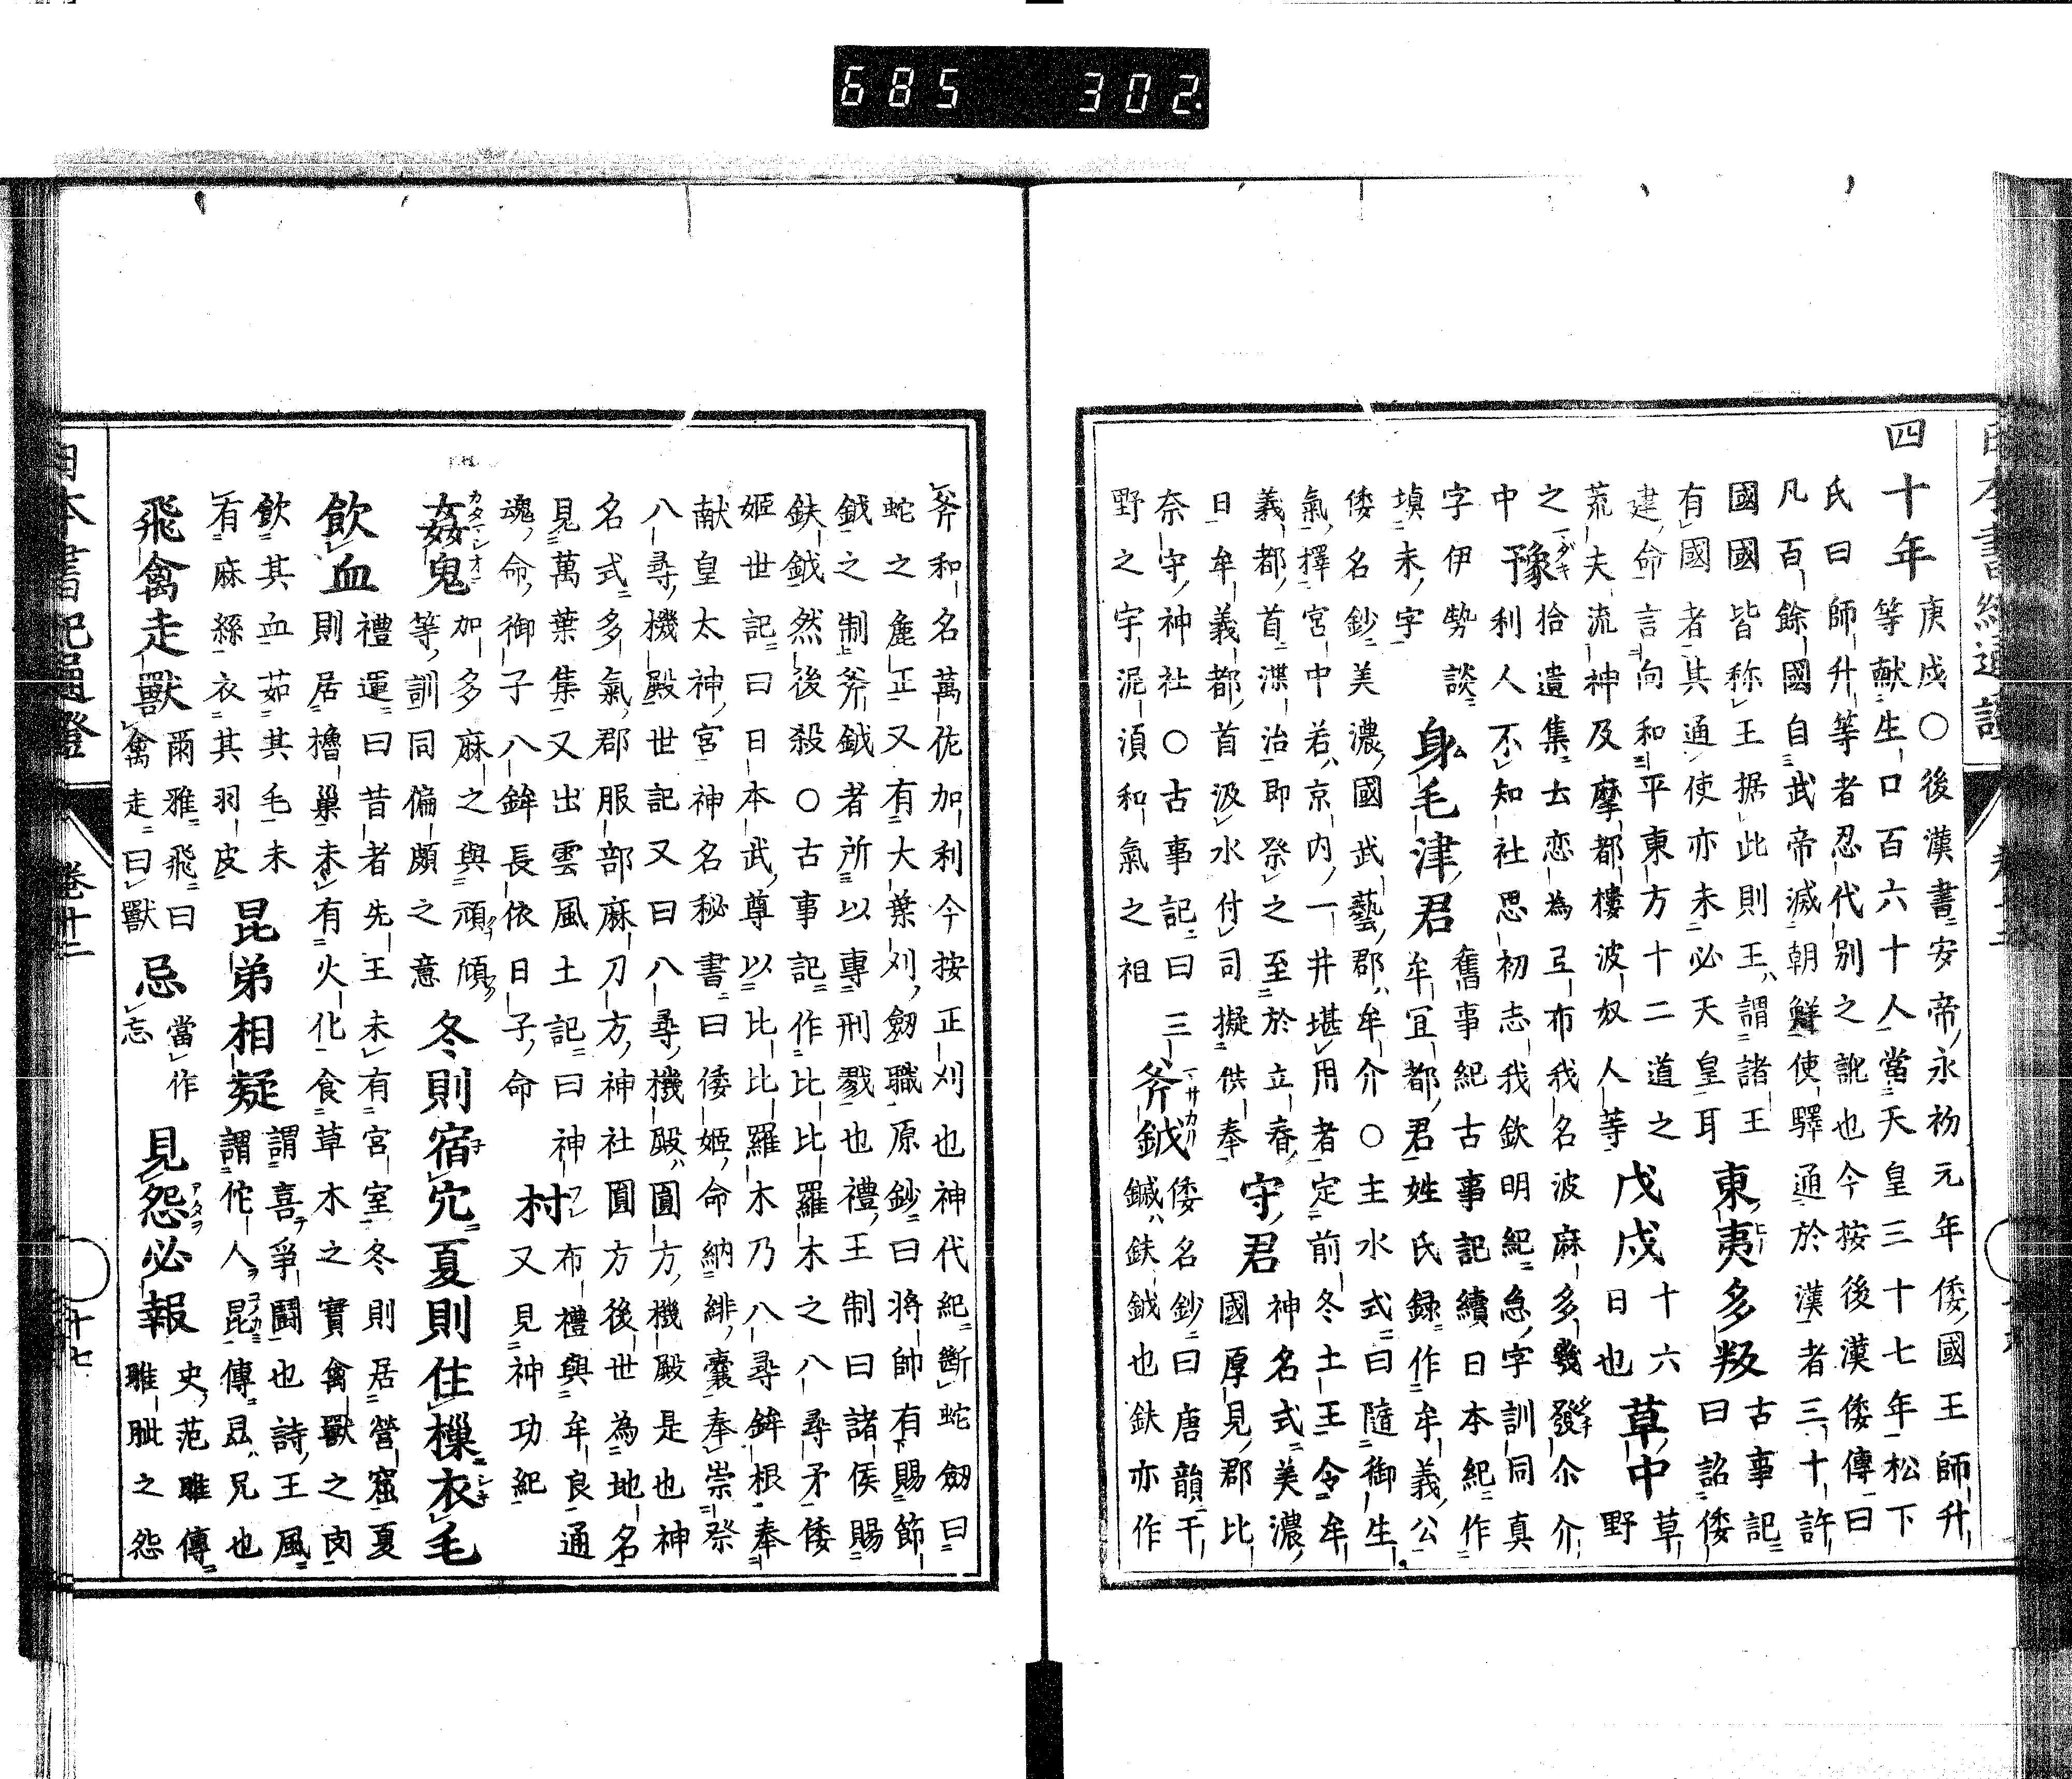 685 302
四十年
庚戌〇後漢書安帝永初元年倭國王師升
等献生口百六十人當天皇三十七年松下
氏曰師升等者忍代別之訛也今按後漢倭傳曰
凡百餘國自武帝滅朝鮮使驛通於漢者三十許
國國皆称王据此則王謂諸王
有國者其通使亦未必天皇耳
東夷多叛
古事記
曰詔倭
建命言向和平東方十二道之
荒夫流神及摩都樓波奴人等
戊戌
十六
日也
草中
草
野
之
中
豫
拾遺集去恋為弖布我名波麻多幾發尓介
利人不知社思初志我欽明紀急字訓同真
字伊勢談
填未字
身毛津君
舊事紀古事記續日本紀作
牟宜都君姓氏録作牟義公
倭名鈔美濃國武藝郡牟介〇主水式曰隨御生
氣擇宮中若京内一井堪用者定前冬土王令牟
義都首渫治即祭之至於立春
日牟義都首汲水付司擬供奉
守君
神名式美濃
國厚見郡比
奈守神社〇古事記曰三
野之宇泥須和氣之祖
斧鉞
倭名鈔曰唐韻干
鏚鈇鉞也鈇亦作
斧和名萬佐加利今按正刈也神代紀断蛇劔曰
蛇之麁正又有大葉刈劔職原鈔曰将帥有賜節
鉞之制斧鉞者所以專刑戮也禮王制曰諸侯賜
鈇鉞然後殺〇古事記作比比羅木之八尋矛倭
姫世記曰日本武尊以比比羅木乃八尋鉾根奉
献皇太神宮神名秘書曰倭姫命納緋嚢奉崇祭
八尋機殿世記又曰八尋機殿圓方機殿是也神
名式多氣郡服部麻刀方神社圓方後世為地名
見萬葉集又出雲風土記曰神
魂命御子八鉾長依日子命
村
布禮與牟良通
又見神功紀
姦鬼
加多麻之與頑傾
等訓同偏頗之意
冬則宿穴夏則住樔衣毛
飲血
禮運曰昔者先王未有宮室冬則居營窟夏
則居橧巢未有火化食草木之實禽獸之肉
飲其血茹其毛未
有麻絲衣其羽皮
昆弟相疑
謂喜爭鬪也詩王風
謂佗人昆傳昆兄也
飛禽走獸
爾雅飛曰
禽走曰獸
忌
當作
忘
見怨必報
史范雎傳
睚眦之怨
卷十二
十七